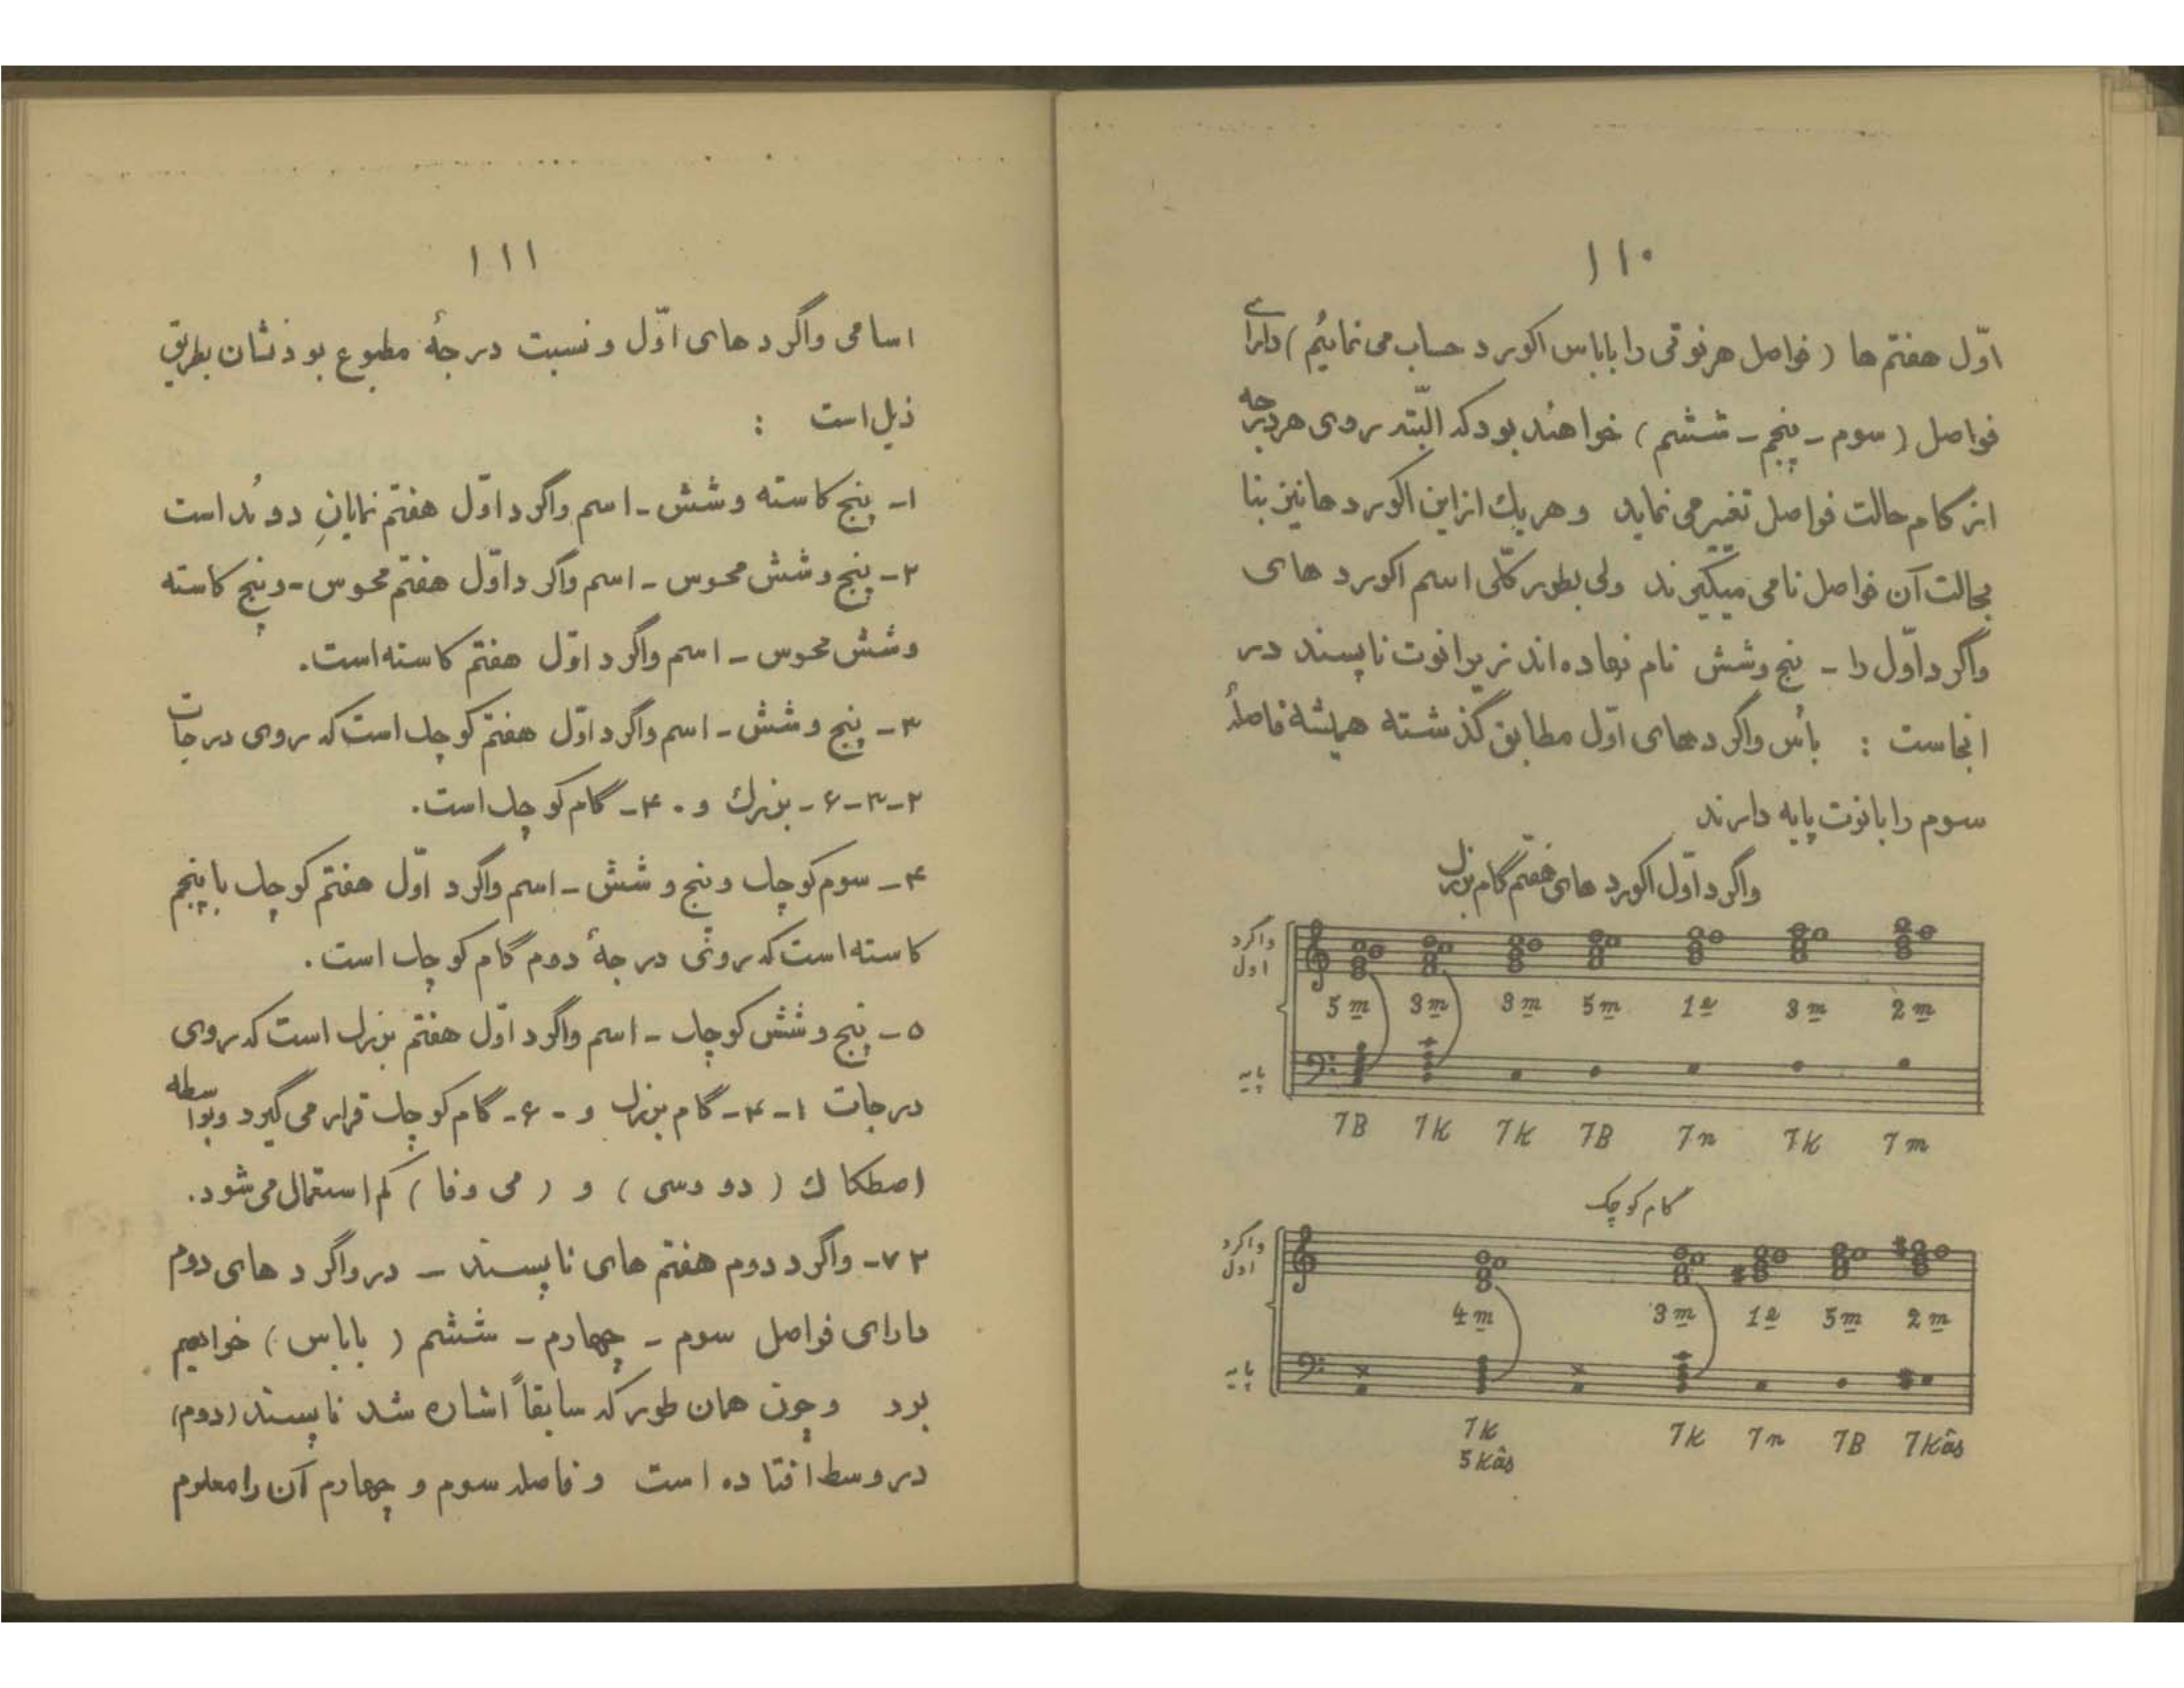 ۱۱۰
اوّل هفتم ها ( فواصل هر نوتی را با باس اکورد حساب می نمائیم ) دارای
فواصل ( سوم - پنجم - ششم ) خواهند بود که البّته روی هر درجه
از کام حالت فواصل تغییر می نماید و هر یك از این اکورد ها نیز بنا
بحالت آن فواصل نامی میگیرند ولی بطور کلّی اسم اکورد های
واگرد اوّل را - پنج و شش نام نهاده اند زیرا نوت ناپسند در
انجاست : باُس واگرد های اوّل مطابق گذشته همیشه فاصلهٔ
سوم را با نوت پایه دارند
واگرد اوّل اکورد های هفتم گام بزرگ
واگرد
اول
5 m 3 m 3 m 5 m 1 e 3 m 2 m
پایه
7B 7K 7K 7B 7n 7K 7m
گام کوچک
واگرد
اول
4 m 3 m 1 e 5 m 2 m
پایه
7K 7K 7n 7B 7Kâs
5Kâs
۱۱۱
اسامی واگرد های اوّل و نسبت درجهٔ مطبوع بودنشان بطریق
ذیل است :
۱- پنج کاسته و شش - اسم واگرد اوّل هفتم نمایانِ دوُند است
۲- پنج و شش محسوس - اسم واگرد اوّل هفتم محسوس - و پنج کاسته
و شش محسوس - اسم واگرد اوّل هفتم کاسته است.
۳- پنج و شش - اسم واگرد اوّل هفتم کوچك است که روی درجات
۲-۳-۶- بزرك و - ۴- گام کوچك است.
۴- سوم کوچك و پنج و شش - اسم واگرد اوّل هفتم کوچك با پنجم
کاسته است که روی درجهٔ دوم گام کوچك است.
۵- پنج و شش کوچك - اسم واگرد اوّل هفتم بزرك است که روی
درجات ۱-۴- گام بزرك و - ۶- گام کوچك قرار می گیرد و بواسطه
اصطکاك ( دو وسی ) و ( می وفا ) کم استمال می شود.
۷۲- واگرد دوم هفتم های ناپسند - در واگرد های دوم
دارای فواصل سوم - چهارم - ششم ( با باس ) خواهیم
بود و چون همان طور که سابقاً اشاره شد ناپسند (دوم)
در وسط افتاده است و فاصله سوم و چهارم آن را معلوم